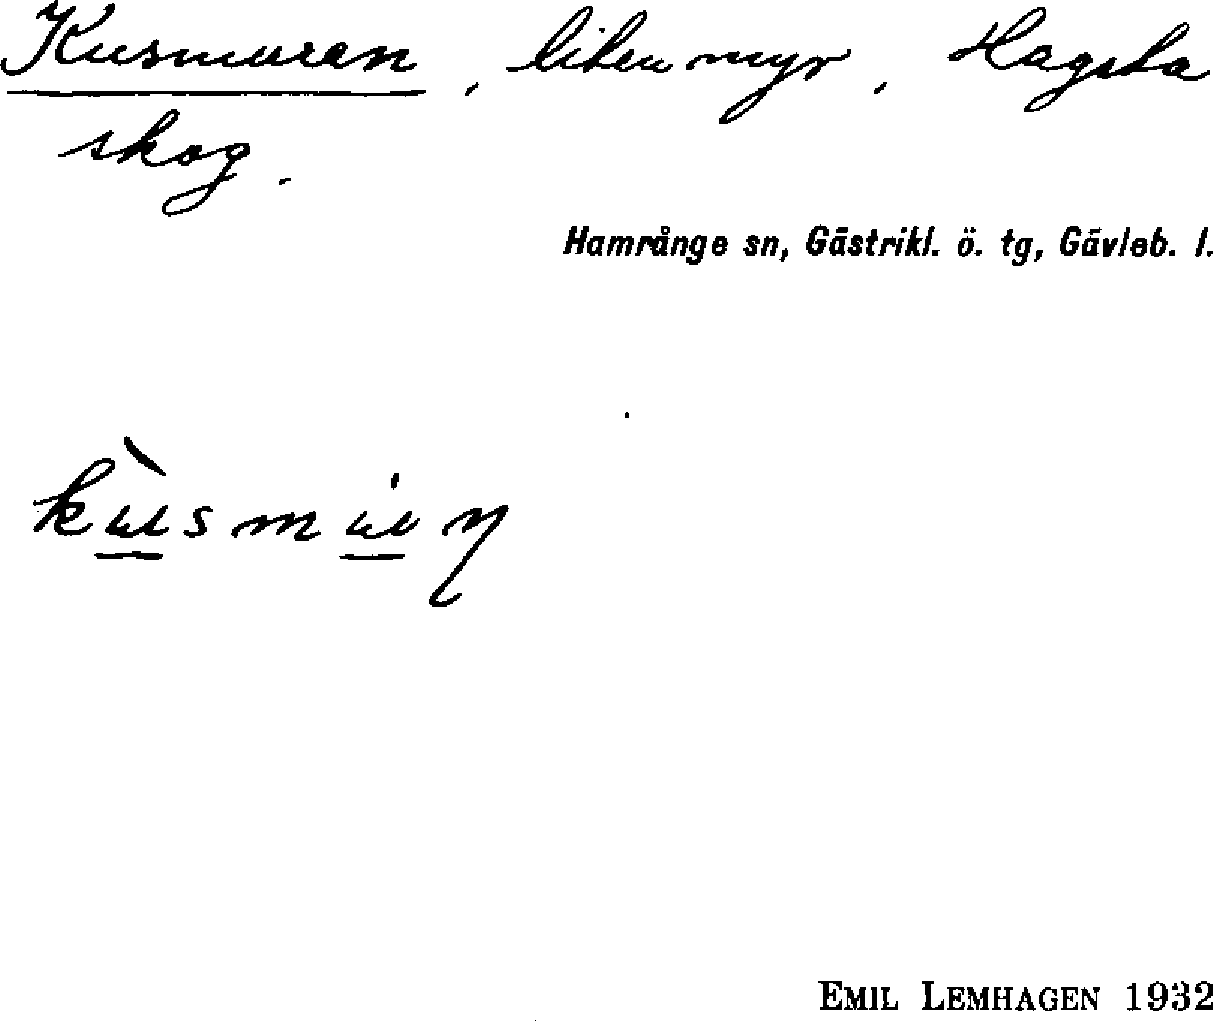 Kusmuren, liten myr, Hagsta
skog.
Hamrånge sn, Gästrikl. ö. tg, Gävleb. l.
EMIL LEMHAGEN 1932